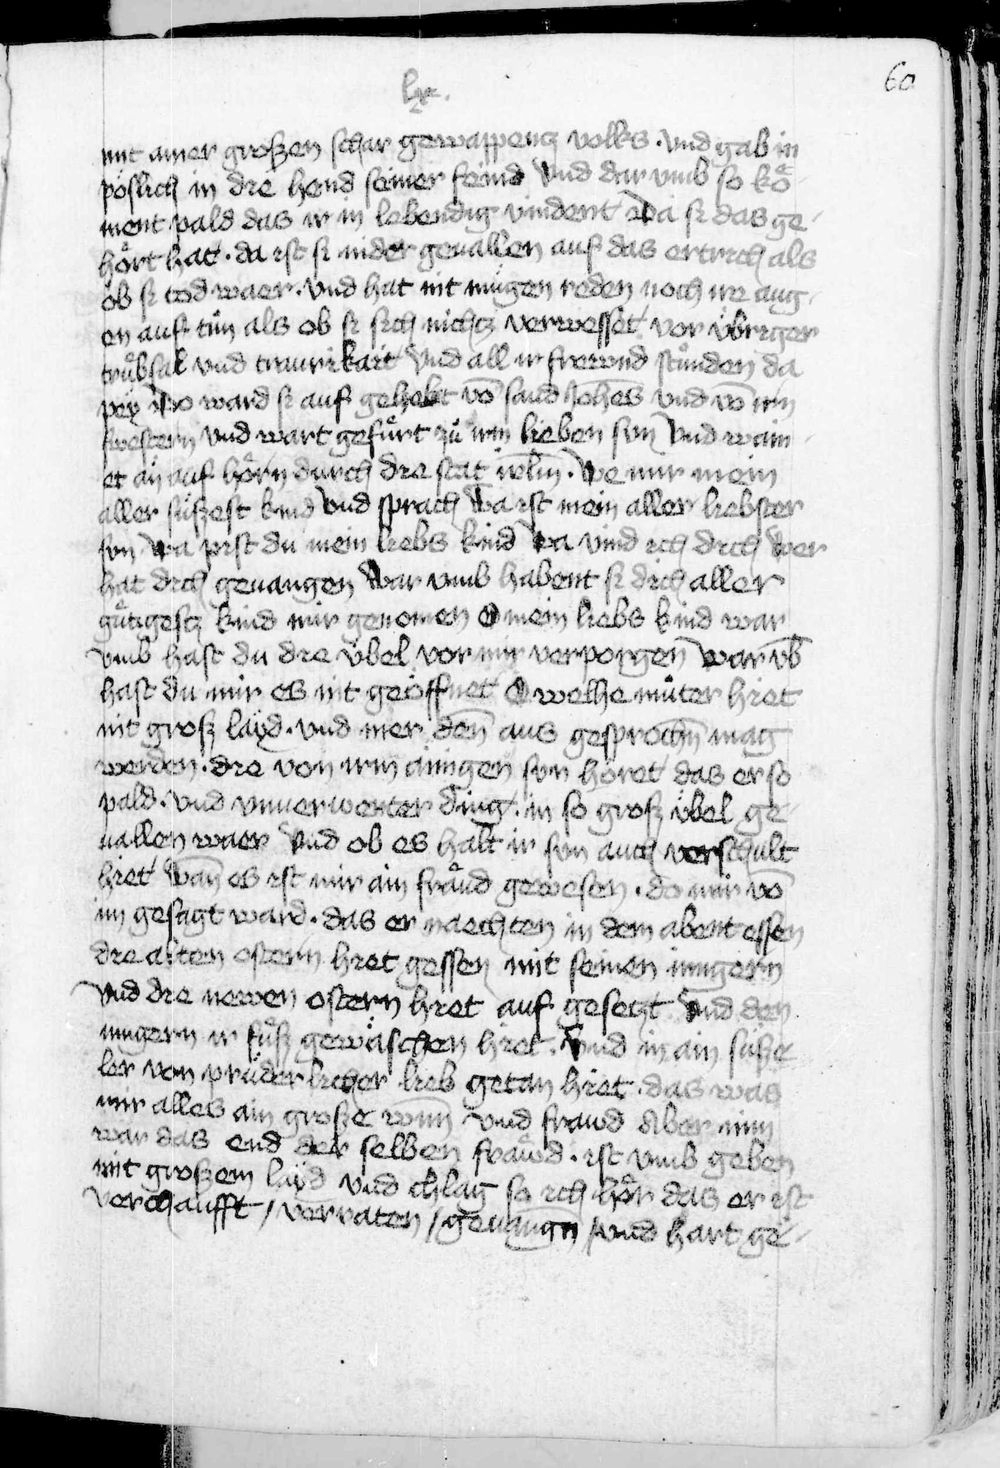 lx.
60
mit ainer großen schar gewappentz volks · vnd gab in
pöslich in die hend seiner feind Vnd dar vmb so kö-
ment pald das ir in lebendig vindent Da si das ge-
hört hat · da ist si nider geuallen auf das ertrich als
ob si tod waer · vnd hat nit mügen reden noch ire aug-
en auf tůn als ob si sich nichtz verwesset vor übriger
trůbsal vnd traurikait Vnd all ir frewnd stůnden da
pey Do ward si auf gehebt vō sand Joh̄es vnd vō irn
swestern Vnd wart gefürt zů irm lieben sun Vnd wain-
et ān auf hörn durch die stat ir̄lm̄ · We mir mein
aller süßest kind Vnd sprach Wa ist mein aller liebster
sun Wa pist du mein liebs kind Wa vind ich dich Wer
hat dich geuangen War vmb habent si dich aller
gütigestz kind mir genomen O mein liebs kind war
vmb hast du die übel vor mir verporgen Warvm̄b
hast du mir es nit geöffnet O welhe můter hiet
nit groß layd · vnd mer den̄ aus gesproch̄n mag
werden · die von irm ainigen sun höret das er so
pald · vnd vnuerwenter ding · in so groß übel ge-
uallen waer Vnd ob es halt ir sun auch verschult
hiet Wan̄ es ist mir ain fräud gewesen · do mir vō
im gesagt ward · das er naechten in dem abent essen
die alten ostern hiet gessen mit seinen iungern
Vnd die newen ostern hiet auf gesetzt Vnd den
iungern ir füß gewäschen hiet · Vnd in ain süße
ler von prüderlicher lieb getan hiet · das was
mir alles ain große wun̄ Vnd frawd Aber nun
war das end der selben frawd · ist vmb geben
mit großem layd vnd chlag so ich hör das er ist
verchaufft / verraten / geuanḡn / vnd hart ge-